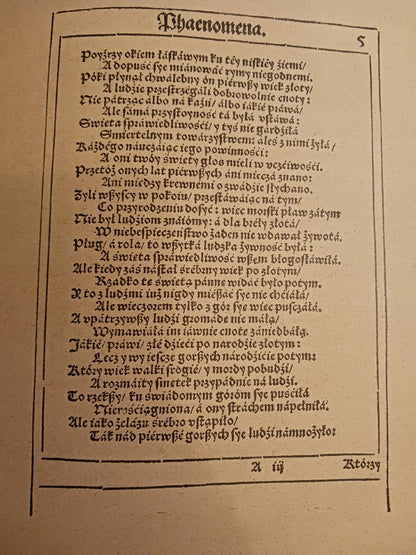 Phaenomena.
5
Poyźrzy okiem łáskáwym ku téy niskiéy źiemi/
A dopuść sye miánowáć rymy niegodnemi.
Póki płynął chwalebny ón pierwszy wiek złoty/
A ludzie przestrzegáli dobrowolnie cnoty:
Nie pátrząc álbo na káźń/ álbo iákié práwá/
Ale sámá przystoyność tá byłá vstáwá:
Swięta spráwiedliwośći/ y tyś nie gárdźiłá
Smiertelnym towárzystwem: áleś z nimi żyłá/
Káżdégo náuczáiąc iego powinnośći:
A oni twóy święty głos mieli w vczćiwośći.
Przetóż onych lat piérwszych áni mieczá znano:
Ani między krewnémi o zwádźie słychano.
Żyli wszyscy w pokoiu/ przestáwáiąc ná tym/
Co przyrodzeniu dosyć: więc morski pław zátym
Nie był ludźiom znáiómy: á dla bréły złotá/
W niebespieczeństwo żaden nie wdawał żywotá.
Pług/ á rola/ to wszytká ludzka żywność byłá:
A święta spráwiedliwość wszem błogosłáwiłá.
Ale kiedy zás nástał śrébrny wiek po złotym/
Rzadko tę świętą pánnę widáć było potym.
A to z ludźmi iuż nigdy miészáć sye nie chćiáłá/
Ale wieczorem tylko z gór sye więc puszczáłá.
A vpátrzywszy ludźi gromádę nie máłą/
Wymawiáłá im iáwnie cnotę zániedbáłą.
Jákié/ práwi/ złé dźieći po narodźie złotym:
Lecz y wy iescze gorszych národźićie potym:
Który wiek walki srogié/ y mordy pobudźi/
A rozmáity smętek przypádnie ná ludźi.
To rzekszy/ ku świádomym góróm sye puśćiłá
Nieośćiągniona/ á ony stráchem nápełniłá.
Ale iáko żelázu śrébro vstąpiło/
Ták nád piérwszé gorszych sye ludźi námnożyło:
A iij
Którzy